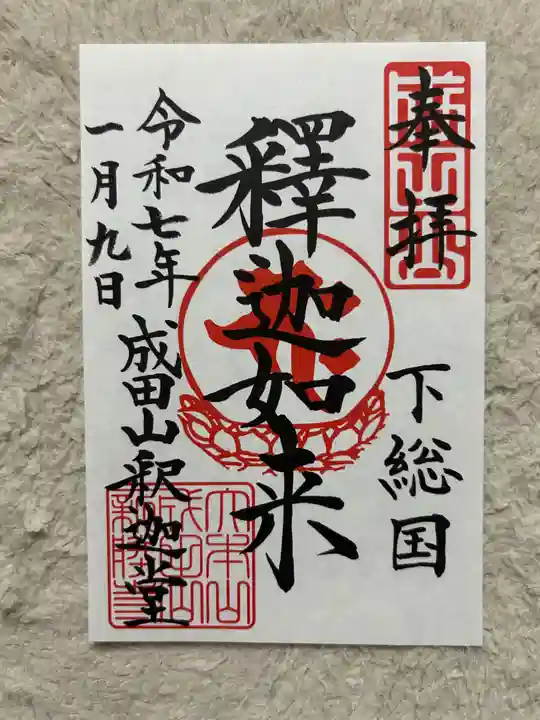 奉拝
下総国
釋迦如来
令和七年
一月九日
成田山釈迦堂
大本山
成田山
新勝寺